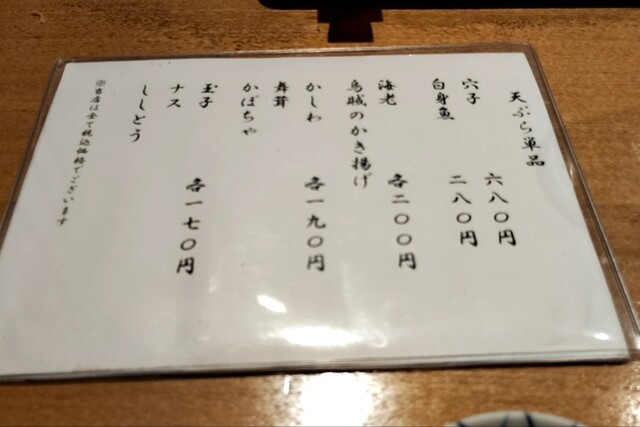 天ぷら単品
穴子 六八〇円
白身魚 二八〇円
海老
烏賊のかき揚げ 各二〇〇円
かしわ
舞茸 各一九〇円
かぼちゃ
玉子
ナス 各一七〇円
ししとう
※当店は全て税込価格でございます